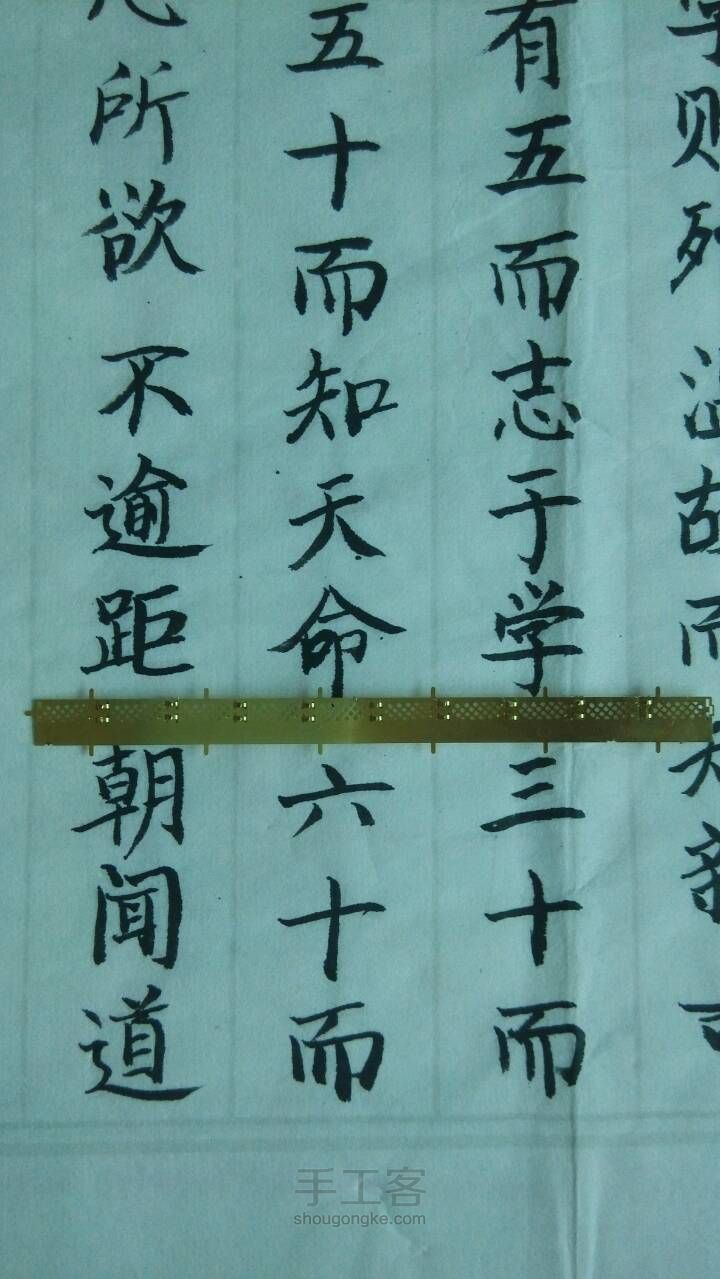 则故而
有五而志于学三十而
五十而知天命六十而
所欲不逾距朝闻道
手工客
shougongke.com